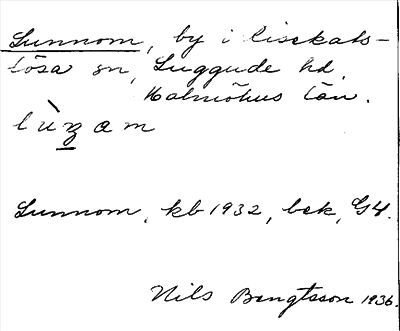 Lunnom, by i Ciseekats-
lösa sn, Luggude hd,
Malmöhus län.
lùnom
Lunnom, kb 1932, bek, G4.
Nils Bengtsson 1936.